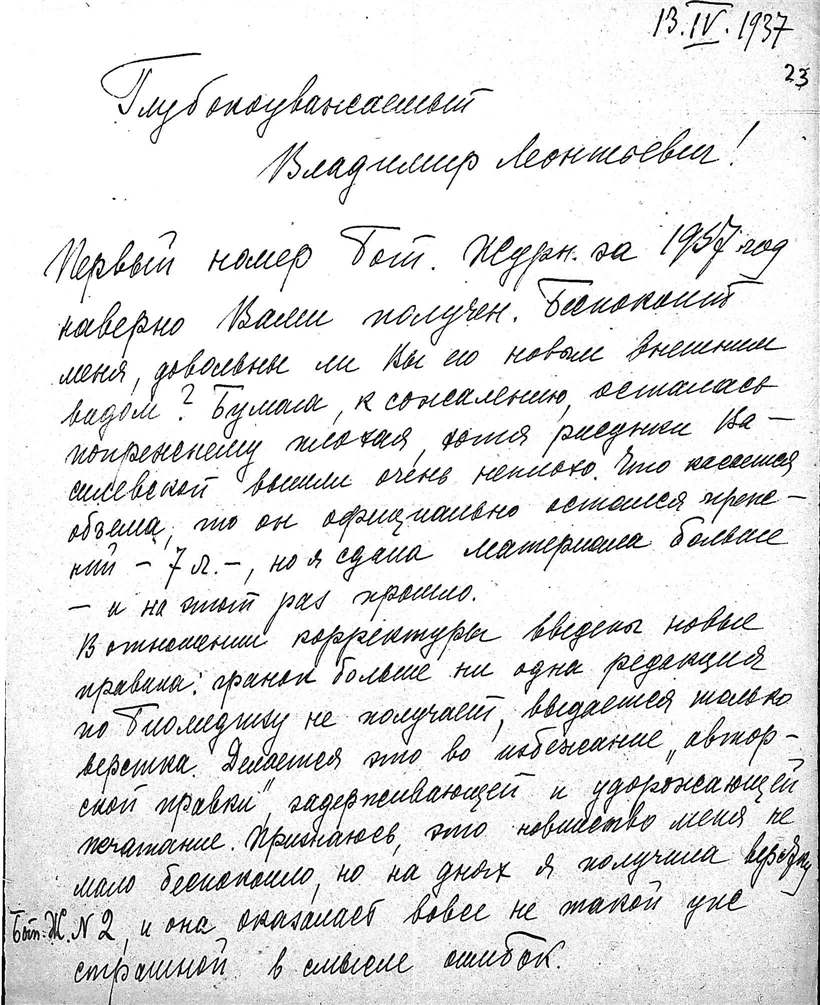 13.IV.1937
23
Глубокоуважаемый
Владимир Леонтьевич!
Первый номер Бот. Журн. за 1937 год
наверно Вами получен. Беспокоит
меня, довольны ли Вы его новым внешним
видом? Бумага, к сожалению, осталась
попрежнему плохая, хотя рисунки Ва-
силевской вышли очень неплохо. Что касается
объема, то он официально остался преж-
ний – 7 л. –, но я сдала материала больше
– и на этот раз прошло.
В отношении корректуры введены новые
правила: гранок больше ни одна редакция
по Биомедгизу не получает, выдается только
верстка. Делается это во избежание „автор-
ской правки“, задерживающей и удорожающей
печатание. Признаюсь, это новшество меня не
мало беспокоило, но на днях я получила верстку
Бот. Ж. N 2, и она оказалась вовсе не такой уже
страшной в смысле ошибок.